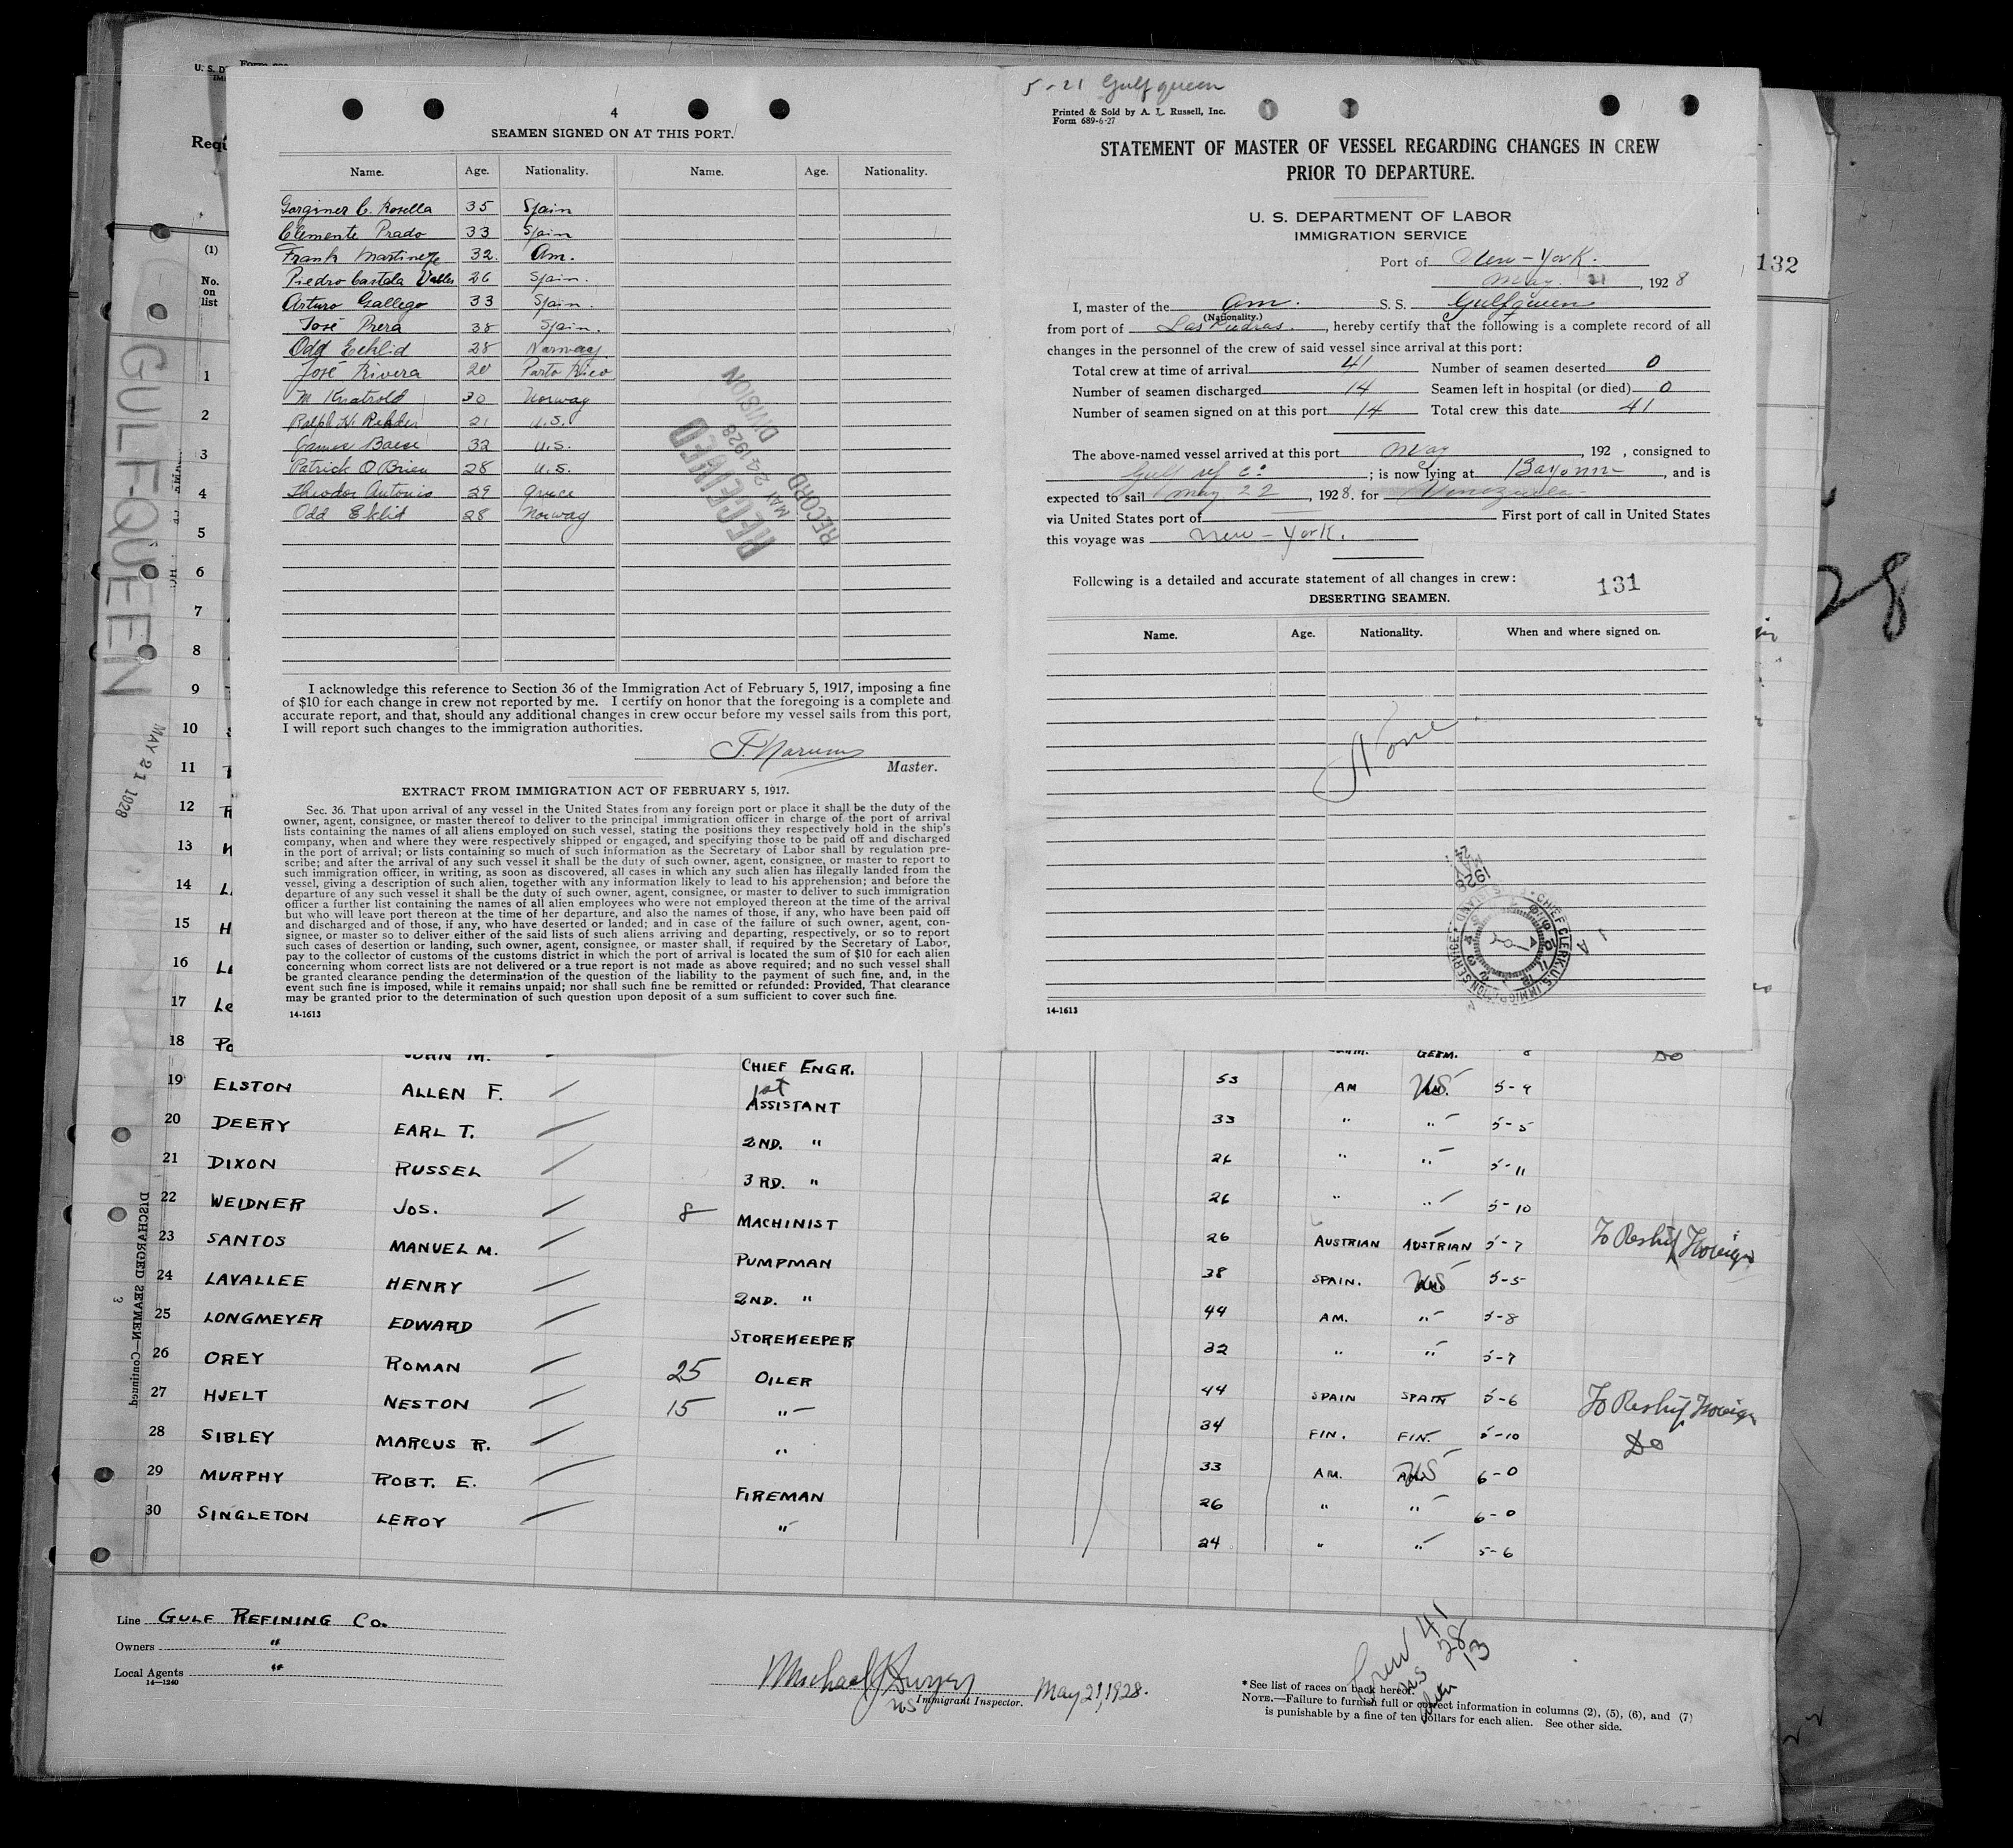 4
SEAMEN SIGNED ON AT THIS PORT.
Name. Age. Nationality. Name. Age. Nationality.
Gorginer C. Rosella 35 Spain
Clemente Prado 33 Spain
Frank Martineze 32. Am.
Piedro Castela Valles 26 Spain.
Arturo Gallego 33 Spain.
José Prera 38 Spain.
Odd Eeklid 28 Norway
José Rivera 20 Porto Rico
M Knatvold 30 Norway
Ralph H. Rehder 21 U.S.
James Baese 32 U.S.
Patrick O Brien 28 U.S.
Theodor Antonio 29 Grece
Odd Eklid 28 Norway
RECEIVED
MAY 24 1928
RECORD DIVISION
I acknowledge this reference to Section 36 of the Immigration Act of February 5, 1917, imposing a fine
of $10 for each change in crew not reported by me. I certify on honor that the foregoing is a complete and
accurate report, and that, should any additional changes in crew occur before my vessel sails from this port,
I will report such changes to the immigration authorities.
Master.
EXTRACT FROM IMMIGRATION ACT OF FEBRUARY 5, 1917.
Sec. 36. That upon arrival of any vessel in the United States from any foreign port or place it shall be the duty of the
owner, agent, consignee, or master thereof to deliver to the principal immigration officer in charge of the port of arrival
lists containing the names of all aliens employed on such vessel, stating the positions they respectively hold in the ship's
company, when and where they were respectively shipped or engaged, and specifying those to be paid off and discharged
in the port of arrival; or lists containing so much of such information as the Secretary of Labor shall by regulation pre-
scribe; and after the arrival of any such vessel it shall be the duty of such owner, agent, consignee, or master to report to
such immigration officer, in writing, as soon as discovered, all cases in which any such alien has illegally landed from the
vessel, giving a description of such alien, together with any information likely to lead to his apprehension; and before the
departure of any such vessel it shall be the duty of such owner, agent, consignee, or master to deliver to such immigration
officer a further list containing the names of all alien employees who were not employed thereon at the time of the arrival
but who will leave port thereon at the time of her departure, and also the names of those, if any, who have been paid off
and discharged and of those, if any, who have deserted or landed; and in case of the failure of such owner, agent, con-
signee, or master so to deliver either of the said lists of such aliens arriving and departing, respectively, or so to report
such cases of desertion or landing, such owner, agent, consignee, or master shall, if required by the Secretary of Labor,
pay to the collector of customs of the customs district in which the port of arrival is located the sum of $10 for each alien
concerning whom correct lists are not delivered or a true report is not made as above required; and no such vessel shall
be granted clearance pending the determination of the question of the liability to the payment of such fine, and, in the
event such fine is imposed, while it remains unpaid; nor shall such fine be remitted or refunded: Provided, That clearance
may be granted prior to the determination of such question upon deposit of a sum sufficient to cover such fine.
14-1613
5-21 Gulfqueen
Printed & Sold by A. L. Russell, Inc.
Form 689-6-27
STATEMENT OF MASTER OF VESSEL REGARDING CHANGES IN CREW
PRIOR TO DEPARTURE.
U. S. DEPARTMENT OF LABOR
IMMIGRATION SERVICE
Port of New-York.
May. 21, 1928
I, master of the Am. S. S. Gulfqueen
(Nationality.)
from port of Las Piedras., hereby certify that the following is a complete record of all
changes in the personnel of the crew of said vessel since arrival at this port:
Total crew at time of arrival 41 Number of seamen deserted 0
Number of seamen discharged 14 Seamen left in hospital (or died) 0
Number of seamen signed on at this port 14 Total crew this date 41
The above-named vessel arrived at this port May, 192 , consigned to
Gulf ref Co; is now lying at Bayonne, and is
expected to sail May 22, 1928. for Venezuela-
via United States port of First port of call in United States
this voyage was New-York.
Following is a detailed and accurate statement of all changes in crew:
131
DESERTING SEAMEN.
Name. Age. Nationality. When and where signed on.
None
1928
CHIEF CLERK U.S. IMMIGRATION SERVICE
14-1613
132
28
U. S. D
Requ
(1)
No. on list
GULFQUEEN
MAY 21 1928
DISCHARGED SEAMEN—Continued
3
1
2
3
4
5
6
7
8
9
10
11
12
13
14
15
16
17
18
JOHN M. CHIEF ENGR. GERM. 8 Do
19 ELSTON ALLEN F. 1st ASSISTANT 53 AM US. 5-9
20 DEERY EARL T. 2ND. " 33 " " 5-5
21 DIXON RUSSEL 3RD. " 26 " " 5-11
22 WEIDNER JOS. 8 MACHINIST 26 " " 5-10
23 SANTOS MANUEL M. PUMPMAN 26 AUSTRIAN AUSTRIAN 5-7 To Reship Foreign
24 LAVALLEE HENRY 2ND. " 38 SPAIN. US 5-5
25 LONGMEYER EDWARD STOREKEEPER 44 AM. " 5-8
26 OREY ROMAN 25 OILER 32 " " 5-7
27 HJELT NESTON 15 " 44 SPAIN SPAIN 5-6 To Reship Foreign
28 SIBLEY MARCUS R. " 34 FIN. FIN. 5-10 Do
29 MURPHY ROBT. E. FIREMAN 33 AM. US 6-0
30 SINGLETON LEROY " 26 " " 6-0
24 " " 5-6
Line GULF REFINING CO.
Owners "
Local Agents "
14—1240
Michael J Dwyer
US Immigrant Inspector. May 21, 1928.
Crew 41
US 28
Alien 13
*See list of races on back hereof.
NOTE.—Failure to furnish full or correct information in columns (2), (5), (6), and (7)
is punishable by a fine of ten dollars for each alien. See other side.